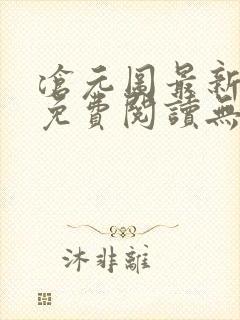 滄元圖最新
免費閱讀無
沐非離